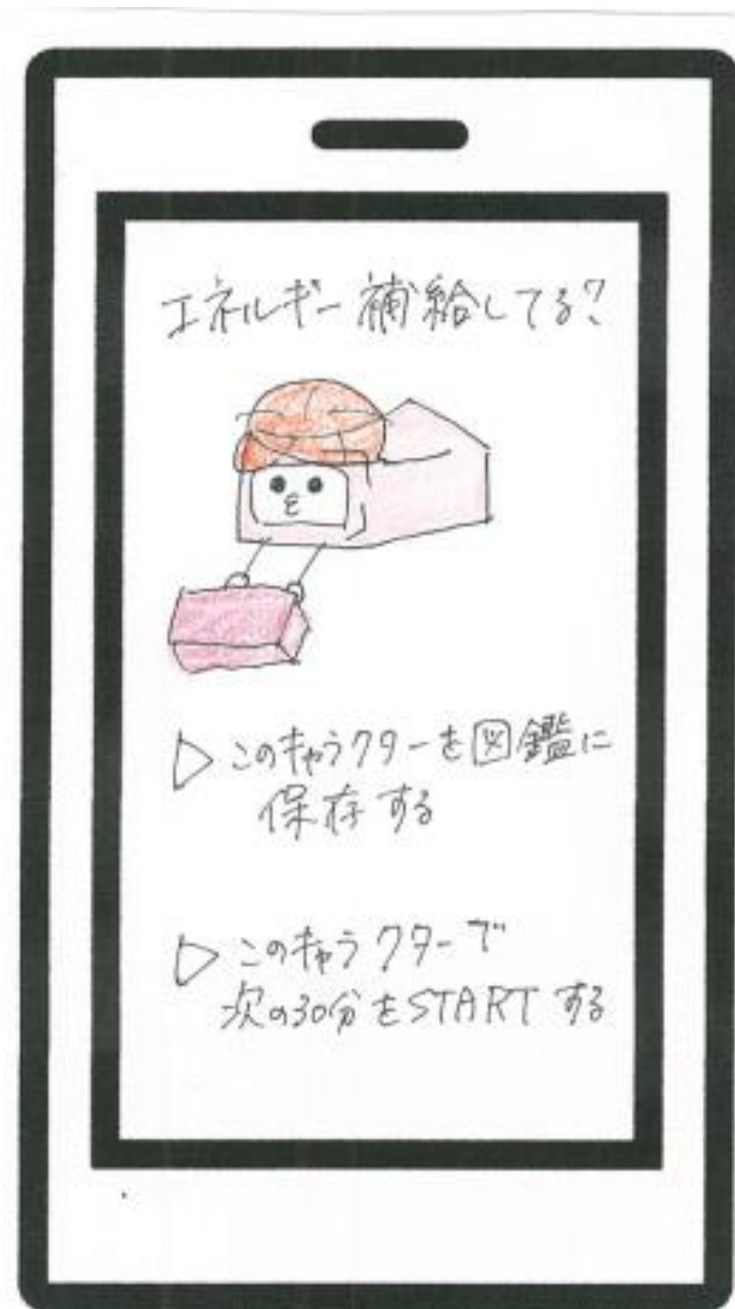 エネルギー補給してる?
▷このキャラクターを図鑑に
保存する
▷このキャラクターで
次の30分をSTARTする